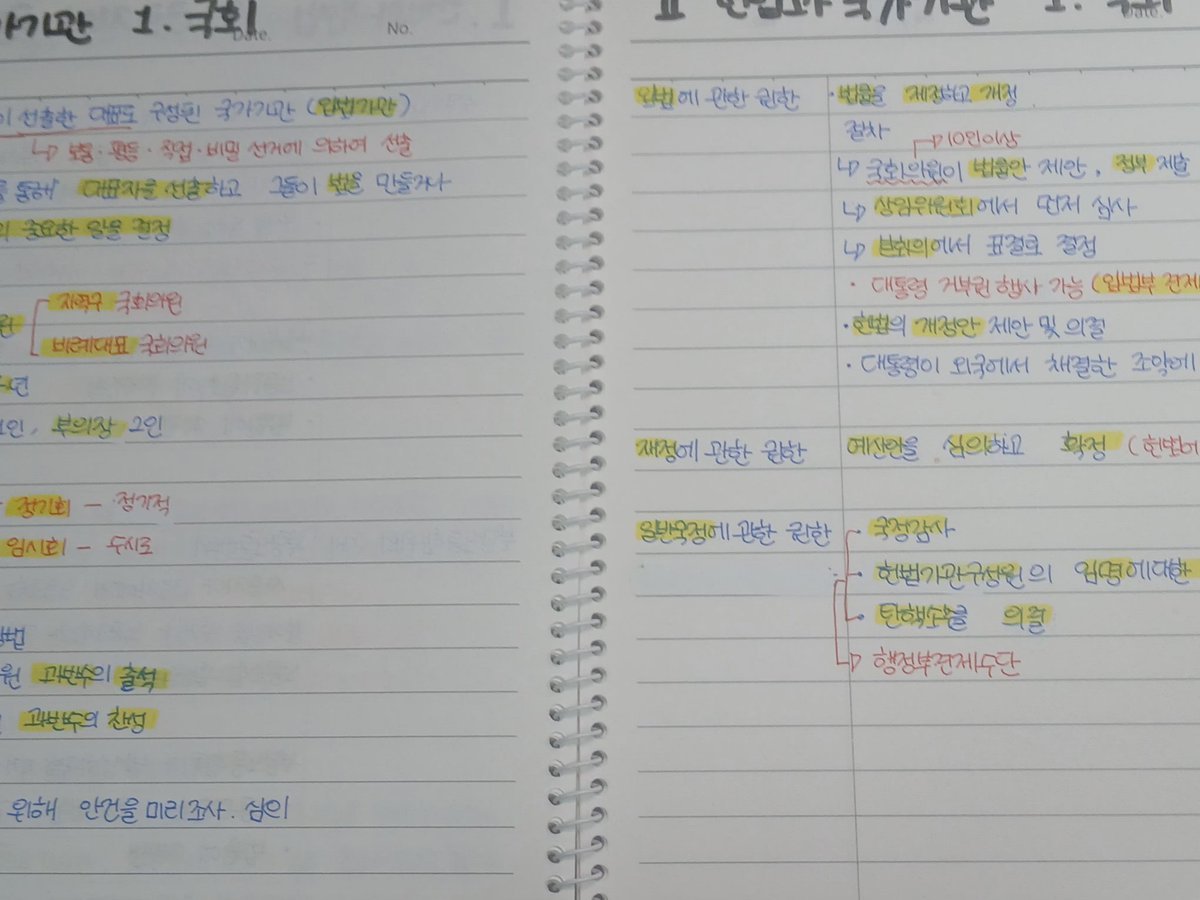 가기관 1. 국회
Date. No.
이 선출한 대표로 구성된 국가기관 (입법기관)
↳ 보통·평등·직접·비밀 선거에 의하여 선출
를 통해 대표자를 선출하고 그들이 법을 만들거나
의 중요한 일을 결정
지역구 국회의원
원
비례대표 국회의원
년
1인, 부의장 2인
정기회 – 정기적
임시회 – 수시로
방법
원 과반수의 출석
과반수의 찬성
위해 안건을 미리 조사. 심의
Ⅱ 헌법과 국가기관 1. 국회
Date.
입법에 관한 권한 · 법률을 제정하고 개정
절차 → 10인이상
↳ 국회의원이 법률안 제안, 정부 제출
↳ 상임위원회에서 먼저 심사
↳ 본회의에서 표결로 결정
· 대통령 거부권 행사 가능 (입법부 견제
· 헌법의 개정안 제안 및 의결
· 대통령이 외국에서 체결한 조약에
재정에 관한 권한 예산안을 심의하고 확정 (
일반국정에 관한 권한 국정감사
헌법기관구성원의 임명에대한
탄핵소추를 의결
→ 행정부견제수단